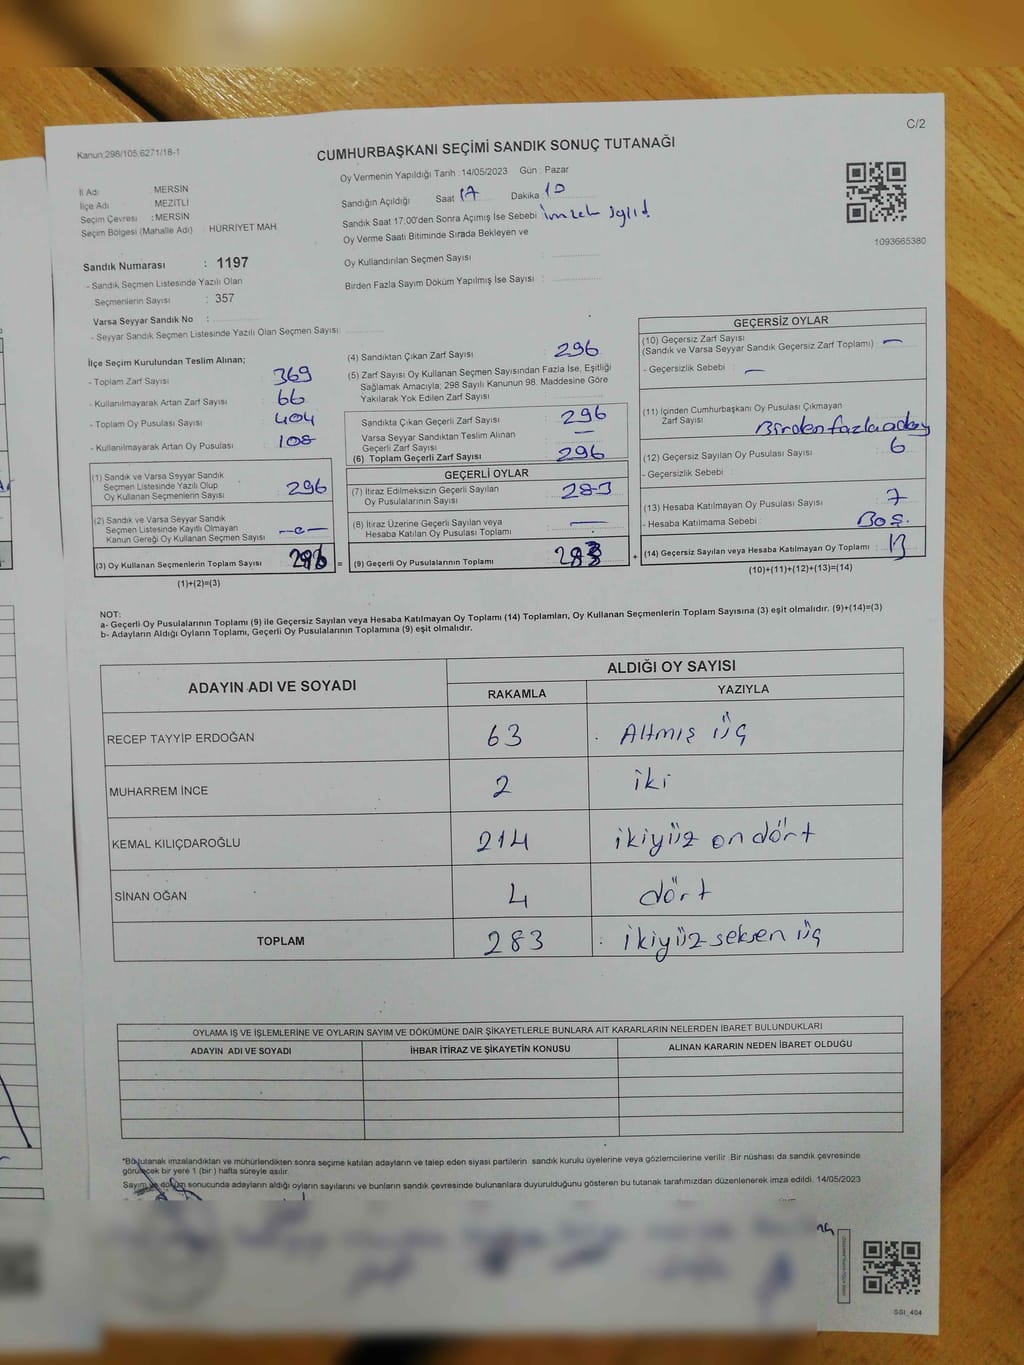 C/2
Kanun:298/105,6271/18-1
CUMHURBAŞKANI SEÇİMİ SANDIK SONUÇ TUTANAĞI
Oy Vermenin Yapıldığı Tarih :14/05/2023 Gün : Pazar
İl Adı : MERSİN
İlçe Adı : MEZİTLİ
Seçim Çevresi : MERSİN
Seçim Bölgesi (Mahalle Adı) : HÜRRİYET MAH
Sandığın Açıldığı Saat 17 Dakika 10
Sandık Saat 17:00'den Sonra Açımış İse Sebebi
Oy Verme Saati Bitiminde Sırada Bekleyen ve
Oy Kullandırılan Seçmen Sayısı :
Birden Fazla Sayım Döküm Yapılmış İse Sayısı :
1093665380
Sandık Numarası : 1197
- Sandık Seçmen Listesinde Yazılı Olan
Seçmenlerin Sayısı : 357
Varsa Seyyar Sandık No :
- Seyyar Sandık Seçmen Listesinde Yazılı Olan Seçmen Sayısı:
İlçe Seçim Kurulundan Teslim Alınan;
- Toplam Zarf Sayısı 369
- Kullanılmayarak Artan Zarf Sayısı 66
- Toplam Oy Pusulası Sayısı 404
- Kullanılmayarak Artan Oy Pusulası 108
(1) Sandık ve Varsa Seyyar Sandık
Seçmen Listesinde Yazılı Olup
Oy Kullanan Seçmenlerin Sayısı 296
(2) Sandık ve Varsa Seyyar Sandık
Seçmen Listesinde Kayıtlı Olmayan
Kanun Gereği Oy Kullanan Seçmen Sayısı
(3) Oy Kullanan Seçmenlerin Toplam Sayısı : 296 =
(1)+(2)=(3)
(4) Sandıktan Çıkan Zarf Sayısı : 296
(5) Zarf Sayısı Oy Kullanan Seçmen Sayısından Fazla İse, Eşitliği
Sağlamak Amacıyla; 298 Sayılı Kanunun 98. Maddesine Göre
Yakılarak Yok Edilen Zarf Sayısı :
Sandıkta Çıkan Geçerli Zarf Sayısı : 296
Varsa Seyyar Sandıktan Teslim Alınan
Geçerli Zarf Sayısı : —
(6) Toplam Geçerli Zarf Sayısı : 296
GEÇERLİ OYLAR
(7) İtiraz Edilmeksizin Geçerli Sayılan
Oy Pusulalarının Sayısı : 283
(8) İtiraz Üzerine Geçerli Sayılan veya
Hesaba Katılan Oy Pusulası Toplamı : —
(9) Geçerli Oy Pusulalarının Toplamı : 283 +
GEÇERSİZ OYLAR
(10) Geçersiz Zarf Sayısı
(Sandık ve Varsa Seyyar Sandık Geçersiz Zarf Toplamı) : —
- Geçersizlik Sebebi : —
(11) İçinden Cumhurbaşkanı Oy Pusulası Çıkmayan
Zarf Sayısı
Birden fazla aday
(12) Geçersiz Sayılan Oy Pusulası Sayısı : 6
- Geçersizlik Sebebi :
(13) Hesaba Katılmayan Oy Pusulası Sayısı : 7
- Hesaba Katılmama Sebebi : Boş.
(14) Geçersiz Sayılan veya Hesaba Katılmayan Oy Toplamı : 13
(10)+(11)+(12)+(13)=(14)
NOT:
a- Geçerli Oy Pusulalarının Toplamı (9) ile Geçersiz Sayılan veya Hesaba Katılmayan Oy Toplamı (14) Toplamları, Oy Kullanan Seçmenlerin Toplam Sayısına (3) eşit olmalıdır. (9)+(14)=(3)
b- Adayların Aldığı Oyların Toplamı, Geçerli Oy Pusulalarının Toplamına (9) eşit olmalıdır.
ADAYIN ADI VE SOYADI ALDIĞI OY SAYISI
RAKAMLA YAZIYLA
RECEP TAYYİP ERDOĞAN 63 Altmış üç
MUHARREM İNCE 2 iki
KEMAL KILIÇDAROĞLU 214 ikiyüz on dört
SİNAN OĞAN 4 dört
TOPLAM 283 : ikiyüz seksen üç
OYLAMA İŞ VE İŞLEMLERİNE VE OYLARIN SAYIM VE DÖKÜMÜNE DAİR ŞİKAYETLERLE BUNLARA AİT KARARLARIN NELERDEN İBARET BULUNDUKLARI
ADAYIN ADI VE SOYADI İHBAR İTİRAZ VE ŞİKAYETİN KONUSU ALINAN KARARIN NEDEN İBARET OLDUĞU
*Bu tutanak imzalandıktan ve mühürlendikten sonra seçime katılan adayların ve talep eden siyasi partilerin sandık kurulu üyelerine veya gözlemcilerine verilir. Bir nüshası da sandık çevresinde
görülecek bir yere 1 (bir ) hafta süreyle asılır.
Sayım ve döküm sonucunda adayların aldığı oyların sayılarını ve bunların sandık çevresinde bulunanlara duyurulduğunu gösteren bu tutanak tarafımızdan düzenlenerek imza edildi. 14/05/2023
SSI_404